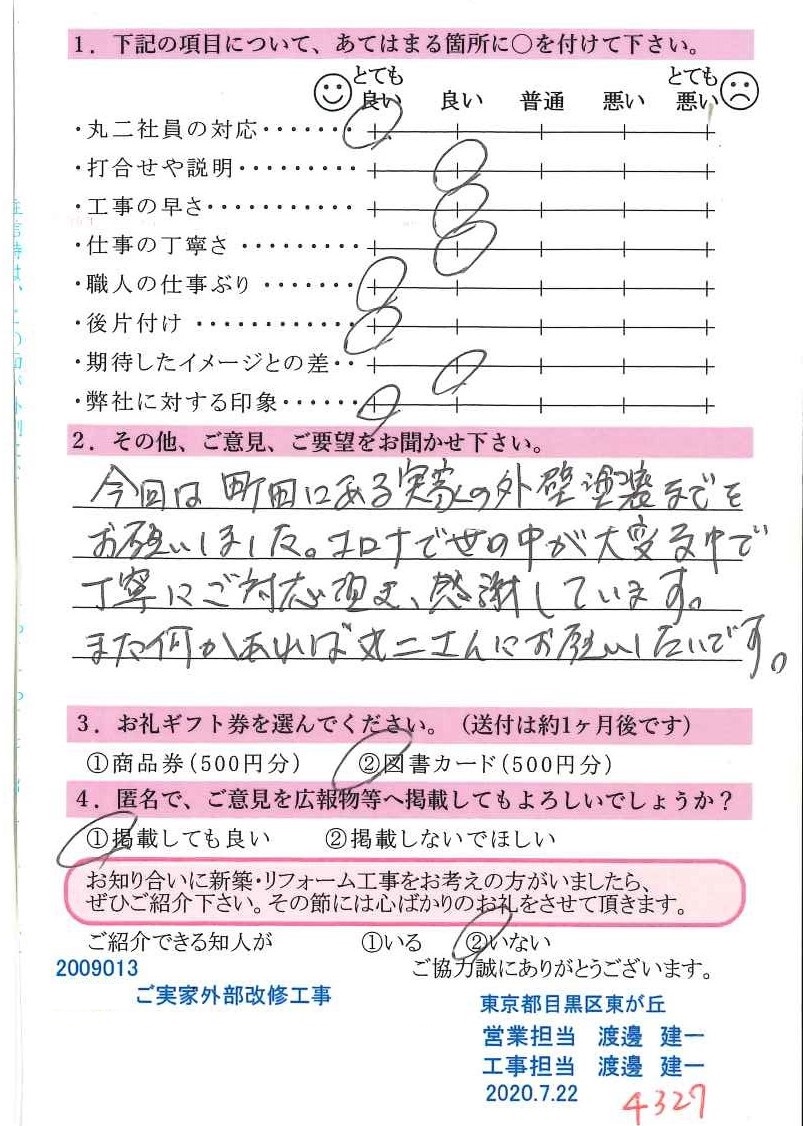 1．下記の項目について、あてはまる箇所に○を付けて下さい。
とても良い 良い 普通 悪い とても悪い
・丸二社員の対応・・・・・・・
・打合せや説明・・・・・・・・・
・工事の早さ・・・・・・・・・・・
・仕事の丁寧さ・・・・・・・・・
・職人の仕事ぶり・・・・・・・
・後片付け・・・・・・・・・・・・
・期待したイメージとの差・・
・弊社に対する印象・・・・・・
2．その他、ご意見、ご要望をお聞かせ下さい。
今回は町田にある実家の外壁塗装までを
お願いしました。コロナで世の中が大変な中で
丁寧にご対応頂き、感謝しています。
また何かあれば丸二さんにお願いしたいです。
3．お礼ギフト券を選んでください。（送付は約1ヶ月後です）
①商品券（500円分） ②図書カード（500円分）
4．匿名で、ご意見を広報物等へ掲載してもよろしいでしょうか？
①掲載しても良い ②掲載しないでほしい
お知り合いに新築・リフォーム工事をお考えの方がいましたら、
ぜひご紹介下さい。その節には心ばかりのお礼をさせて頂きます。
ご紹介できる知人が ①いる ②いない
ご協力誠にありがとうございます。
2009013
ご実家外部改修工事
東京都目黒区東が丘
営業担当 渡邊 建一
工事担当 渡邊 建一
2020.7.22
4327